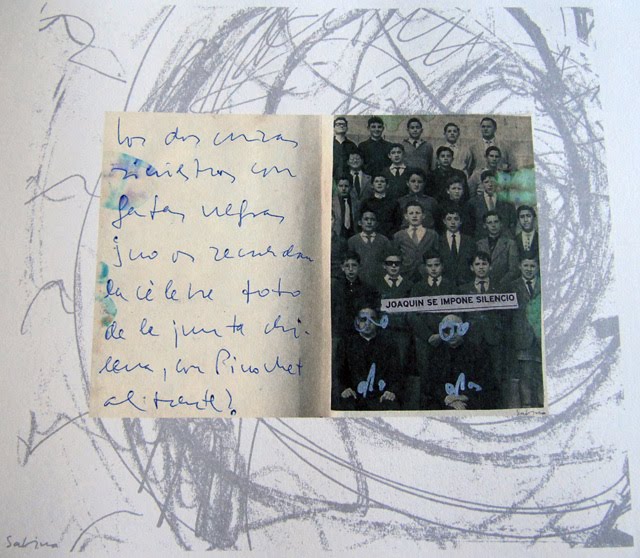 los dos curas
siniestros con
gafas negras
¿no os recuerdan
la célebre foto
de la junta chi-
lena, con Pinochet
al frente?
JOAQUIN SE IMPONE SILENCIO
Sabina
Sabina